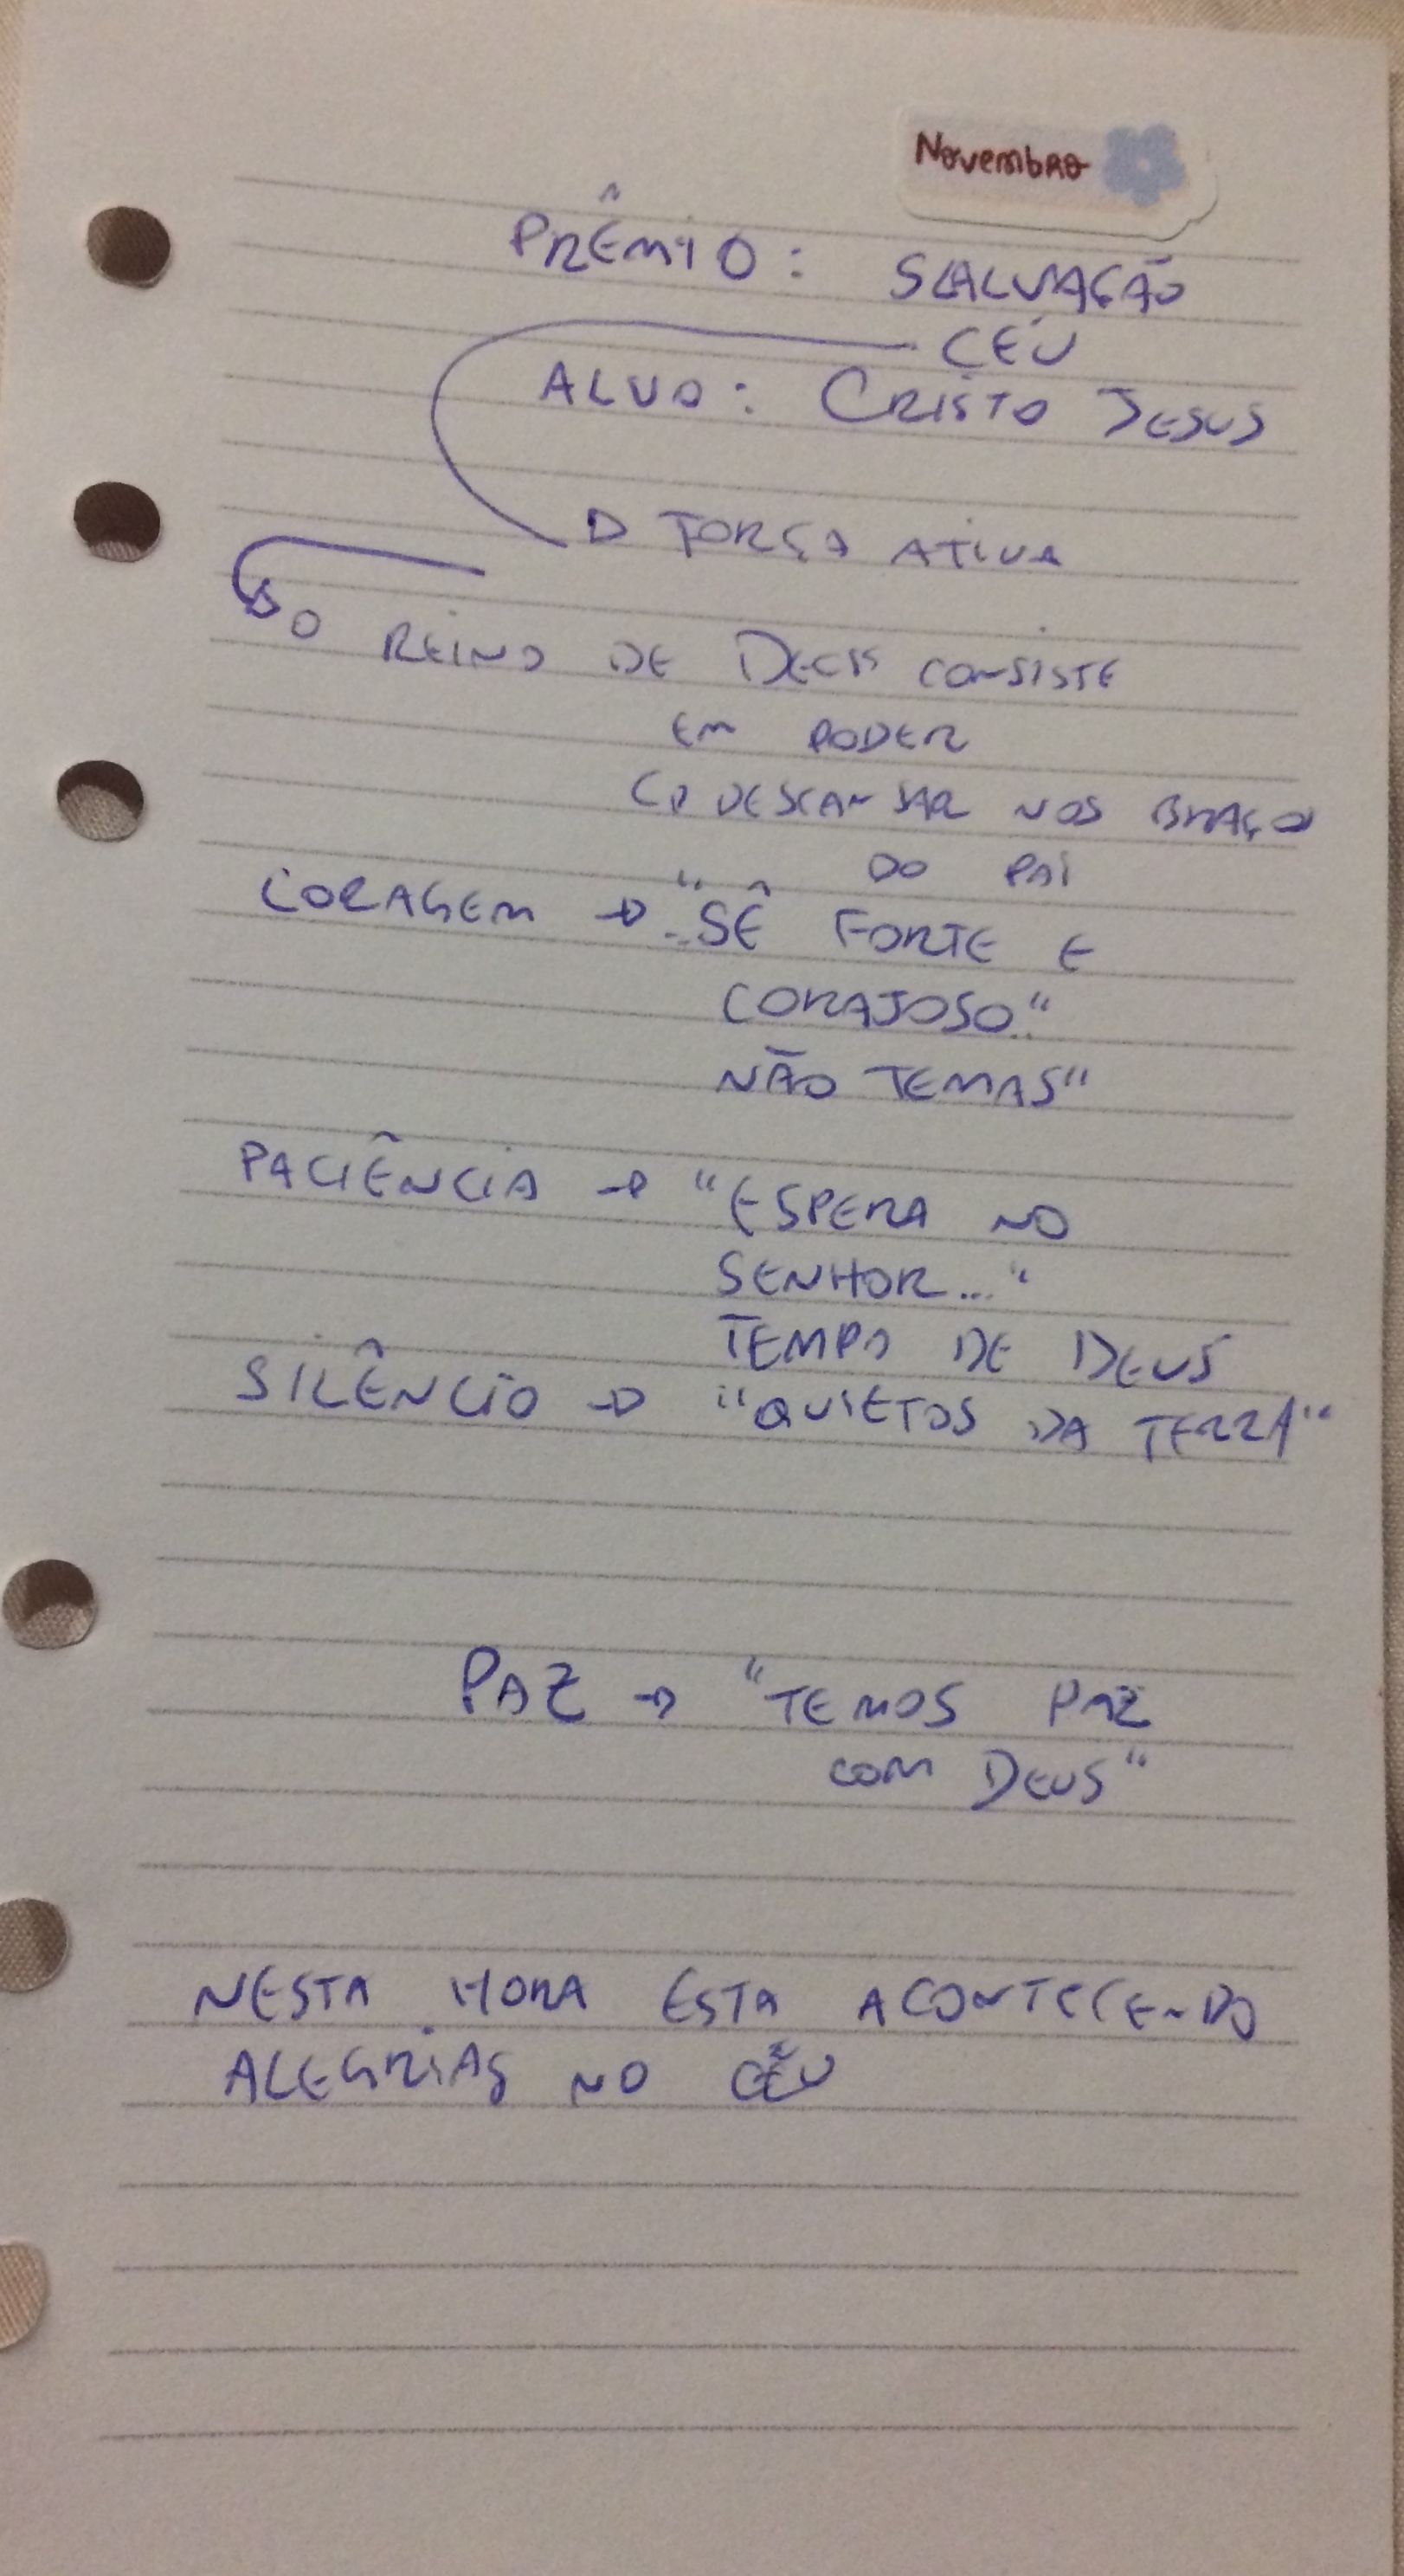 Novembro
PRÊMIO: SALVAÇÃO
CÉU
ALVO: CRISTO JESUS
→ FORÇA ATIVA
→ O REINO DE DEUS CONSISTE
EM PODER
↳ DESCANSAR NOS BRAÇOS
DO PAI
CORAGEM → "SÊ FORTE E
CORAJOSO."
NÃO TEMAS"
PACIÊNCIA → "ESPERA NO
SENHOR..."
TEMPO DE DEUS
SILÊNCIO → "QUIETOS DA TERRA"
PAZ → "TEMOS PAZ
COM DEUS"
NESTA HORA ESTA ACONTECENDO
ALEGRIAS NO CÉU